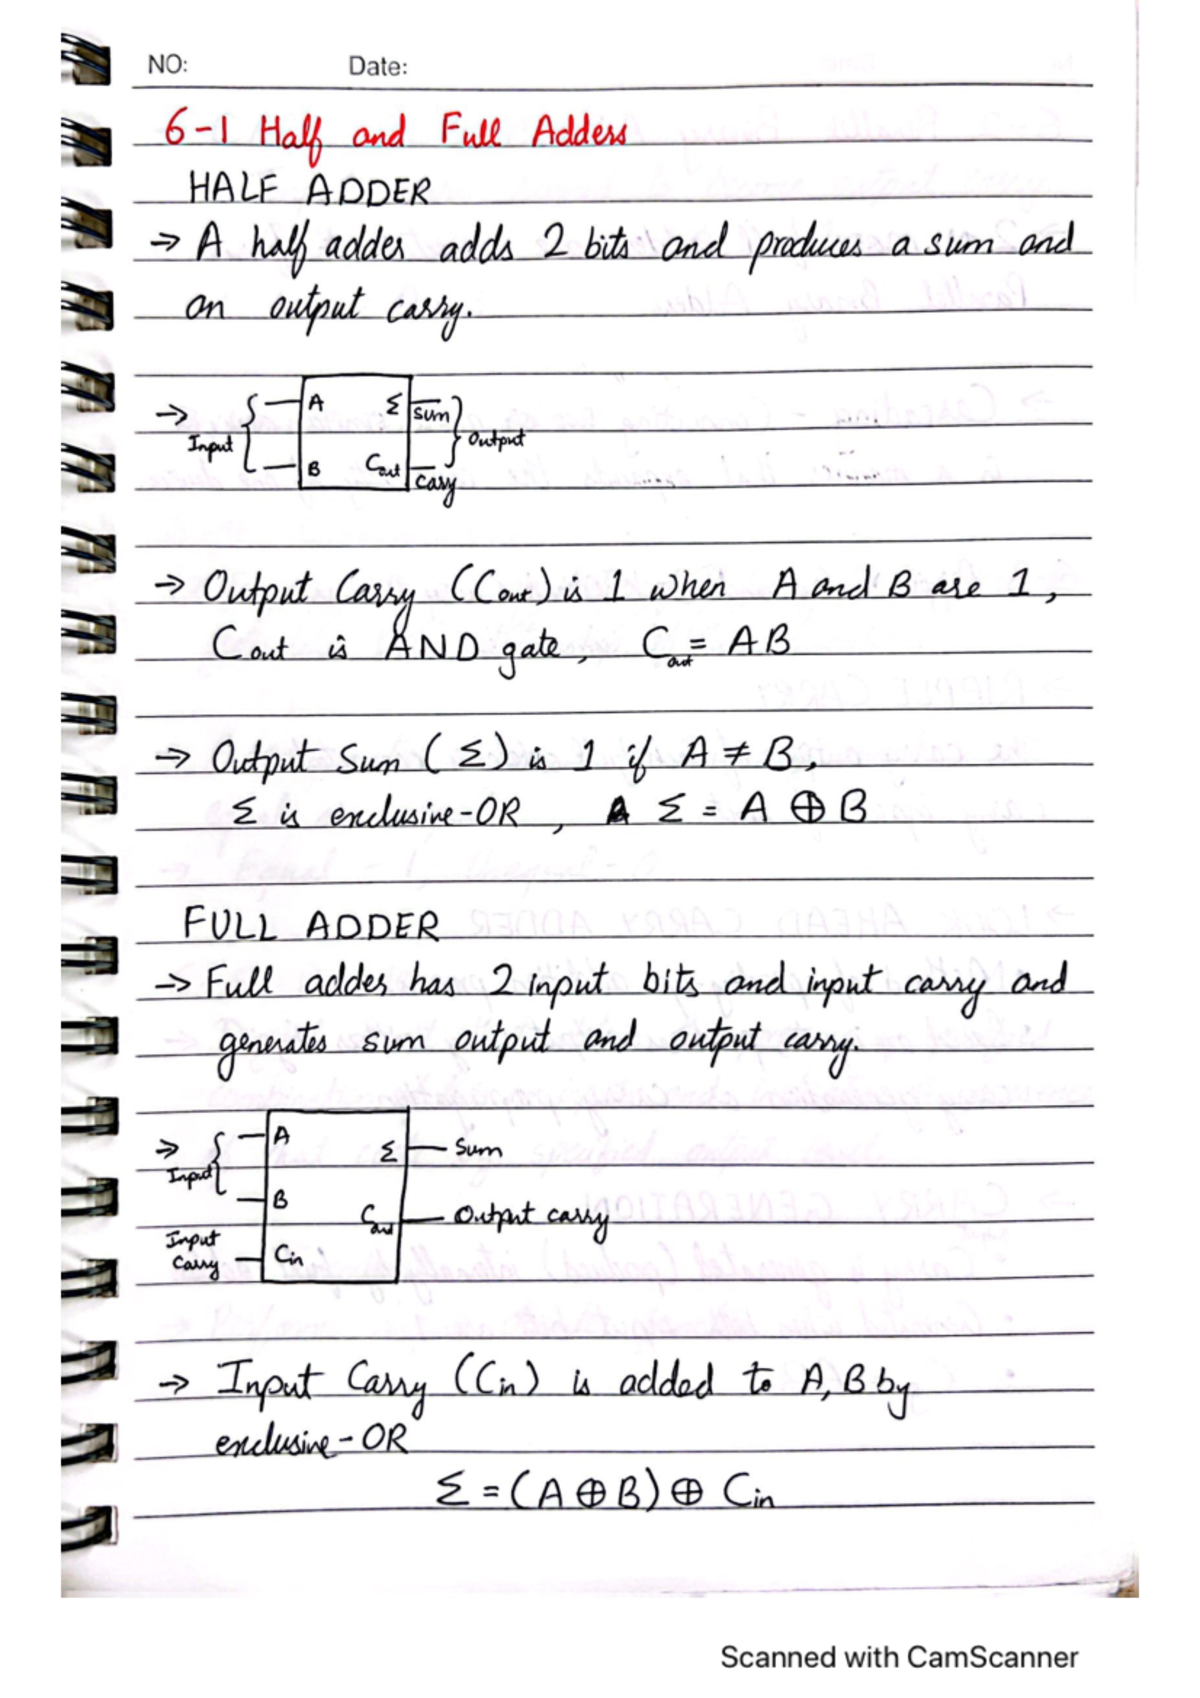 NO: Date:
6-1 Half and Full Adders
HALF ADDER
→ A half adder adds 2 bits and produces a sum and
an output carry.
→ Input { A Σ sum } Output
B Cout carry
→ Output Carry (Cout) is 1 when A and B are 1,
Cout is AND gate, Cout = AB
→ Output Sum (Σ) is 1 if A ≠ B,
Σ is exclusive-OR, Σ = A ⊕ B
FULL ADDER
→ Full adder has 2 input bits and input carry and
generates sum output and output carry.
→ Input { A Σ Sum
B Cout Output carry
Input Carry Cin
→ Input Carry (Cin) is added to A, B by
exclusive-OR
Σ = (A ⊕ B) ⊕ Cin
Scanned with CamScanner